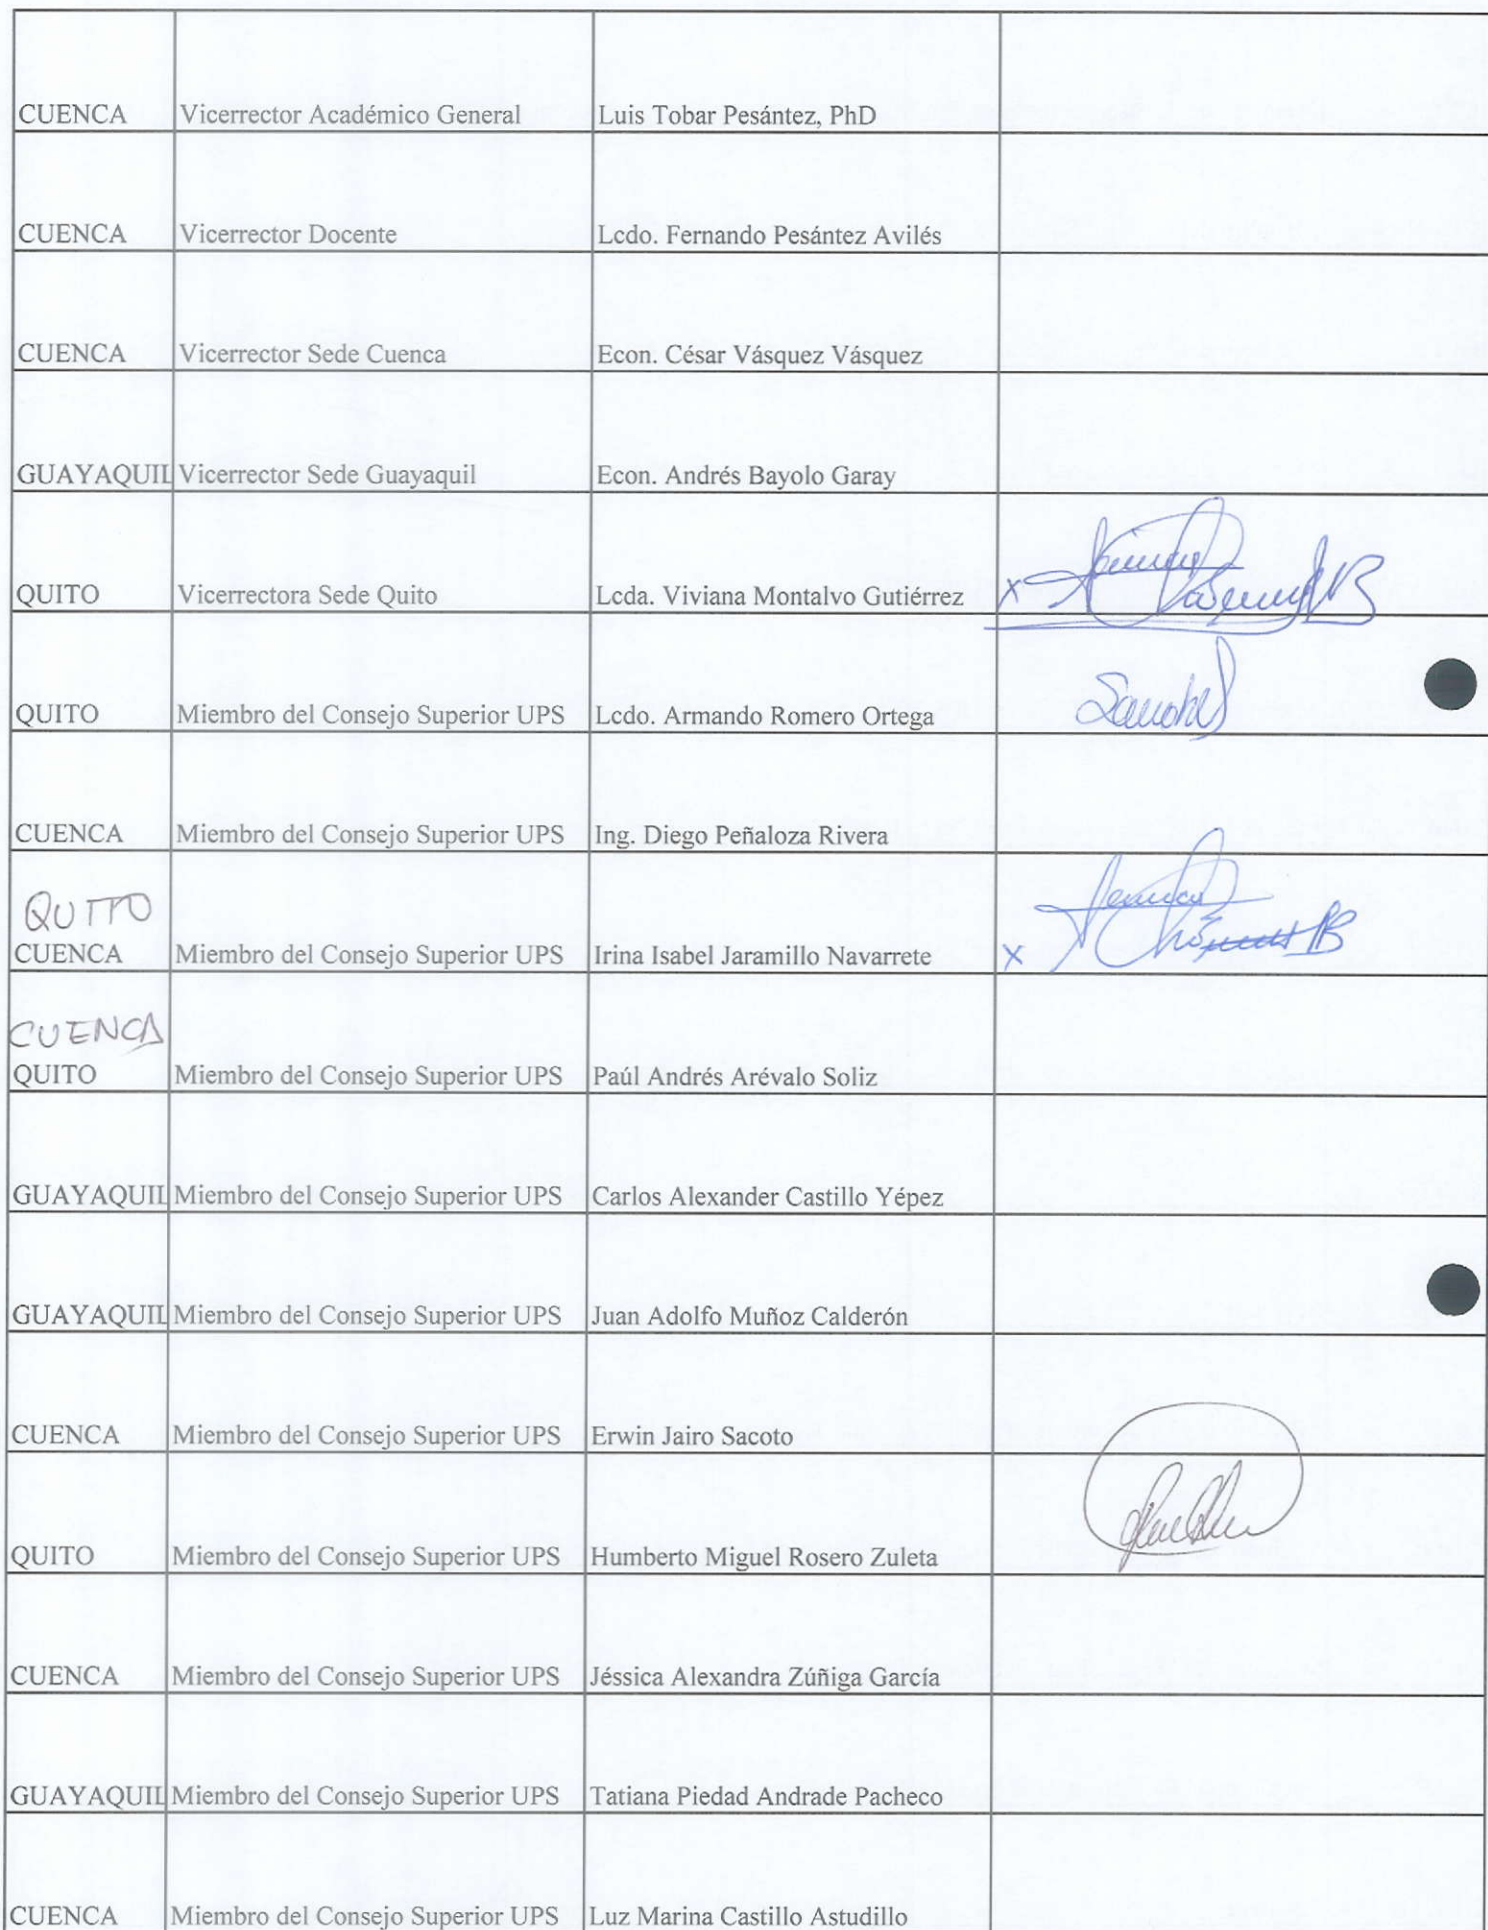 CUENCA Vicerrector Académico General Luis Tobar Pesántez, PhD
CUENCA Vicerrector Docente Lcdo. Fernando Pesántez Avilés
CUENCA Vicerrector Sede Cuenca Econ. César Vásquez Vásquez
GUAYAQUIL Vicerrector Sede Guayaquil Econ. Andrés Bayolo Garay
QUITO Vicerrectora Sede Quito Lcda. Viviana Montalvo Gutiérrez X
QUITO Miembro del Consejo Superior UPS Lcdo. Armando Romero Ortega
CUENCA Miembro del Consejo Superior UPS Ing. Diego Peñaloza Rivera
QUITO
CUENCA Miembro del Consejo Superior UPS Irina Isabel Jaramillo Navarrete X
CUENCA
QUITO Miembro del Consejo Superior UPS Paúl Andrés Arévalo Soliz
GUAYAQUIL Miembro del Consejo Superior UPS Carlos Alexander Castillo Yépez
GUAYAQUIL Miembro del Consejo Superior UPS Juan Adolfo Muñoz Calderón
CUENCA Miembro del Consejo Superior UPS Erwin Jairo Sacoto
QUITO Miembro del Consejo Superior UPS Humberto Miguel Rosero Zuleta
CUENCA Miembro del Consejo Superior UPS Jéssica Alexandra Zúñiga García
GUAYAQUIL Miembro del Consejo Superior UPS Tatiana Piedad Andrade Pacheco
CUENCA Miembro del Consejo Superior UPS Luz Marina Castillo Astudillo